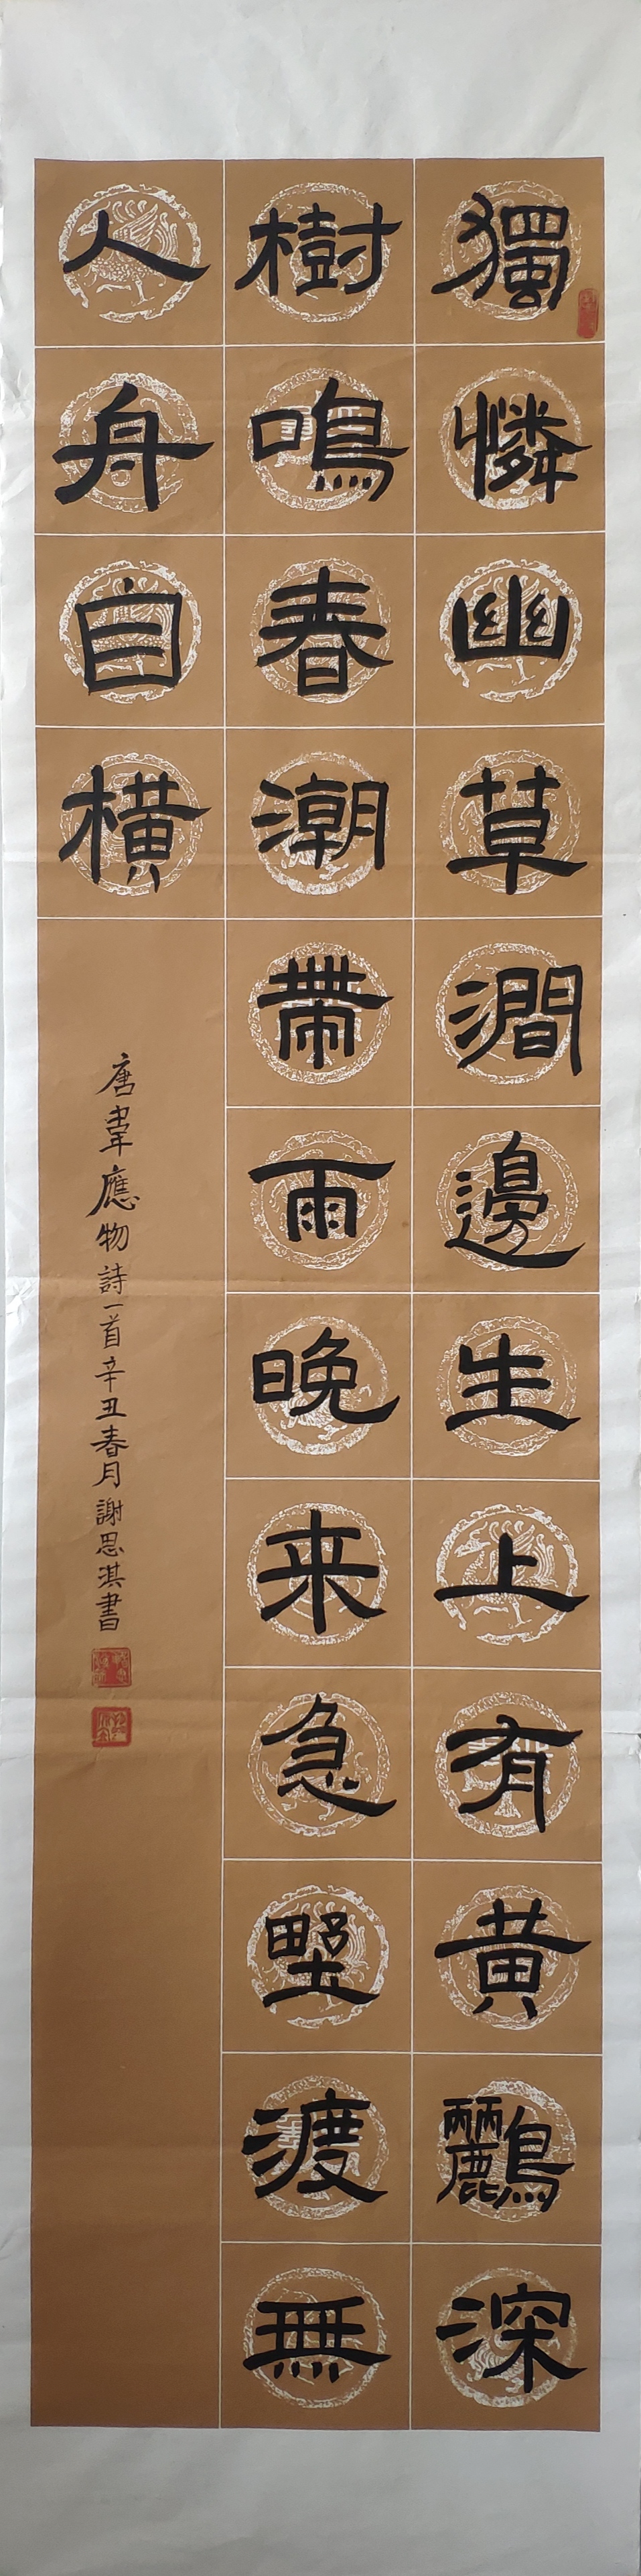 獨憐幽草澗邊生上有黄鸝深
樹鳴春潮帶雨晚来急野渡無
人舟自横
唐韋應物詩一首辛丑春月謝思淇書